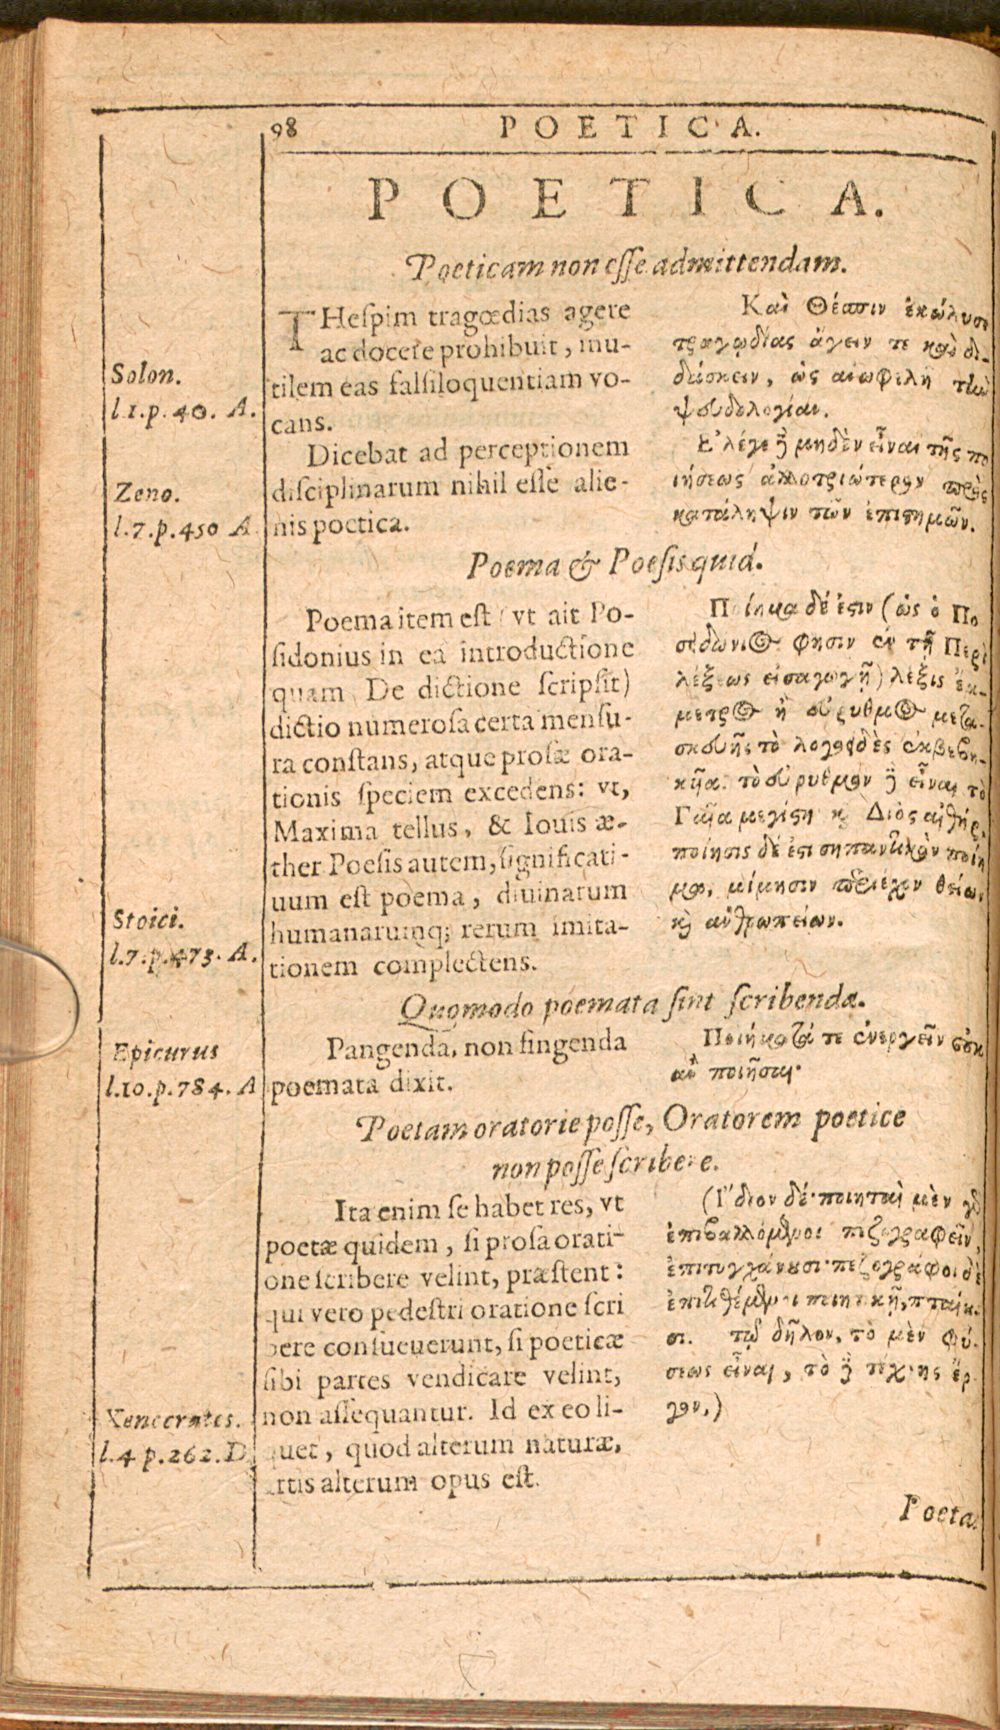 98 POETICA.
POETICA.
Poeticam non esse admittendam.
Solon.
l.1.p.40. A.
THeſpim tragœdias agere
ac docere prohibuit, inu-
tilem eas falſiloquentiam vo-
cans.
Καὶ Θέσπιν ἐκώλυσε
τραγῳδίας ἄγειν τε καὶ δι-
δάσκειν, ὡς ἀνωφελῆ τὴν
ψευδολογίαν.
Zeno.
l.7.p.450 A
Dicebat ad perceptionem
diſciplinarum nihil eſſe alie-
nis poetica.
Ἔλεγε δὲ μηδὲν εἶναι τῆς πο
ιήσεως ἀλλοτριώτερον πρὸς
κατάληψιν τῶν ἐπιστημῶν.
Poema & Poeſis quid.
Stoici.
l.7.p.473. A.
Poema item eſt (vt ait Po-
ſidonius in ea introductione
quam De dictione ſcripſit)
dictio numeroſa certa menſu-
ra conſtans, atque proſæ ora-
tionis ſpeciem excedens: vt,
Maxima tellus, & Iouis æ-
ther Poeſis autem, ſignificati-
uum eſt poema, diuinarum
humanarumq; rerum imita-
tionem complectens.
Ποίημα δέ ἐστιν (ὡς ὁ Πο
σειδώνιος φησιν ἐν τῇ Περὶ
λέξεως εἰσαγωγῇ) λέξις ἔμ-
μετρος ἢ εὔρυθμος μετα-
σκευῆς τὸ λογοειδὲς ἐκβεβη-
κῆα. τὸ εὔρυθμον δὲ εἶναι τὸ
Γαῖα μεγίστη καὶ Διὸς αἰθήρ.
ποίησις δέ ἐστι σημαντικὸν ποίη
μα, μίμησιν περιέχον θείων,
καὶ ἀνθρωπείων.
Quomodo poemata ſint ſcribenda.
Epicurus
l.10.p.784. A
Pangenda, non fingenda
poemata dixit.
Ποιήματά τε ἐνεργεῖν οὐκ
ἂν ποιῆσαι.
Poetam oratorie poſſe, Oratorem poetice
non poſſe ſcribere.
Xenocrates.
l.4 p.262.D
Ita enim ſe habet res, vt
poetæ quidem, ſi proſa orati-
one ſcribere velint, præſtent:
qui vero pedeſtri oratione ſcri
bere conſueuerunt, ſi poeticæ
ſibi partes vendicare velint,
non aſſequantur. Id ex eo li-
quet, quod alterum naturæ,
artis alterum opus eſt.
(Ἴδιον δέ· ποιηταὶ μὲν γὸ
ἐπιβαλλόμενοι πεζογραφεῖν,
ἐπιτυγχάνουσι· πεζογράφοι δὲ
ἐπιτιθέμενοι ποιητικῇ, πταίου-
σι. τῷ δῆλον, τὸ μὲν φύ-
σεως εἶναι, τὸ δὲ τέχνης ἔρ-
γον.)
Poeta.